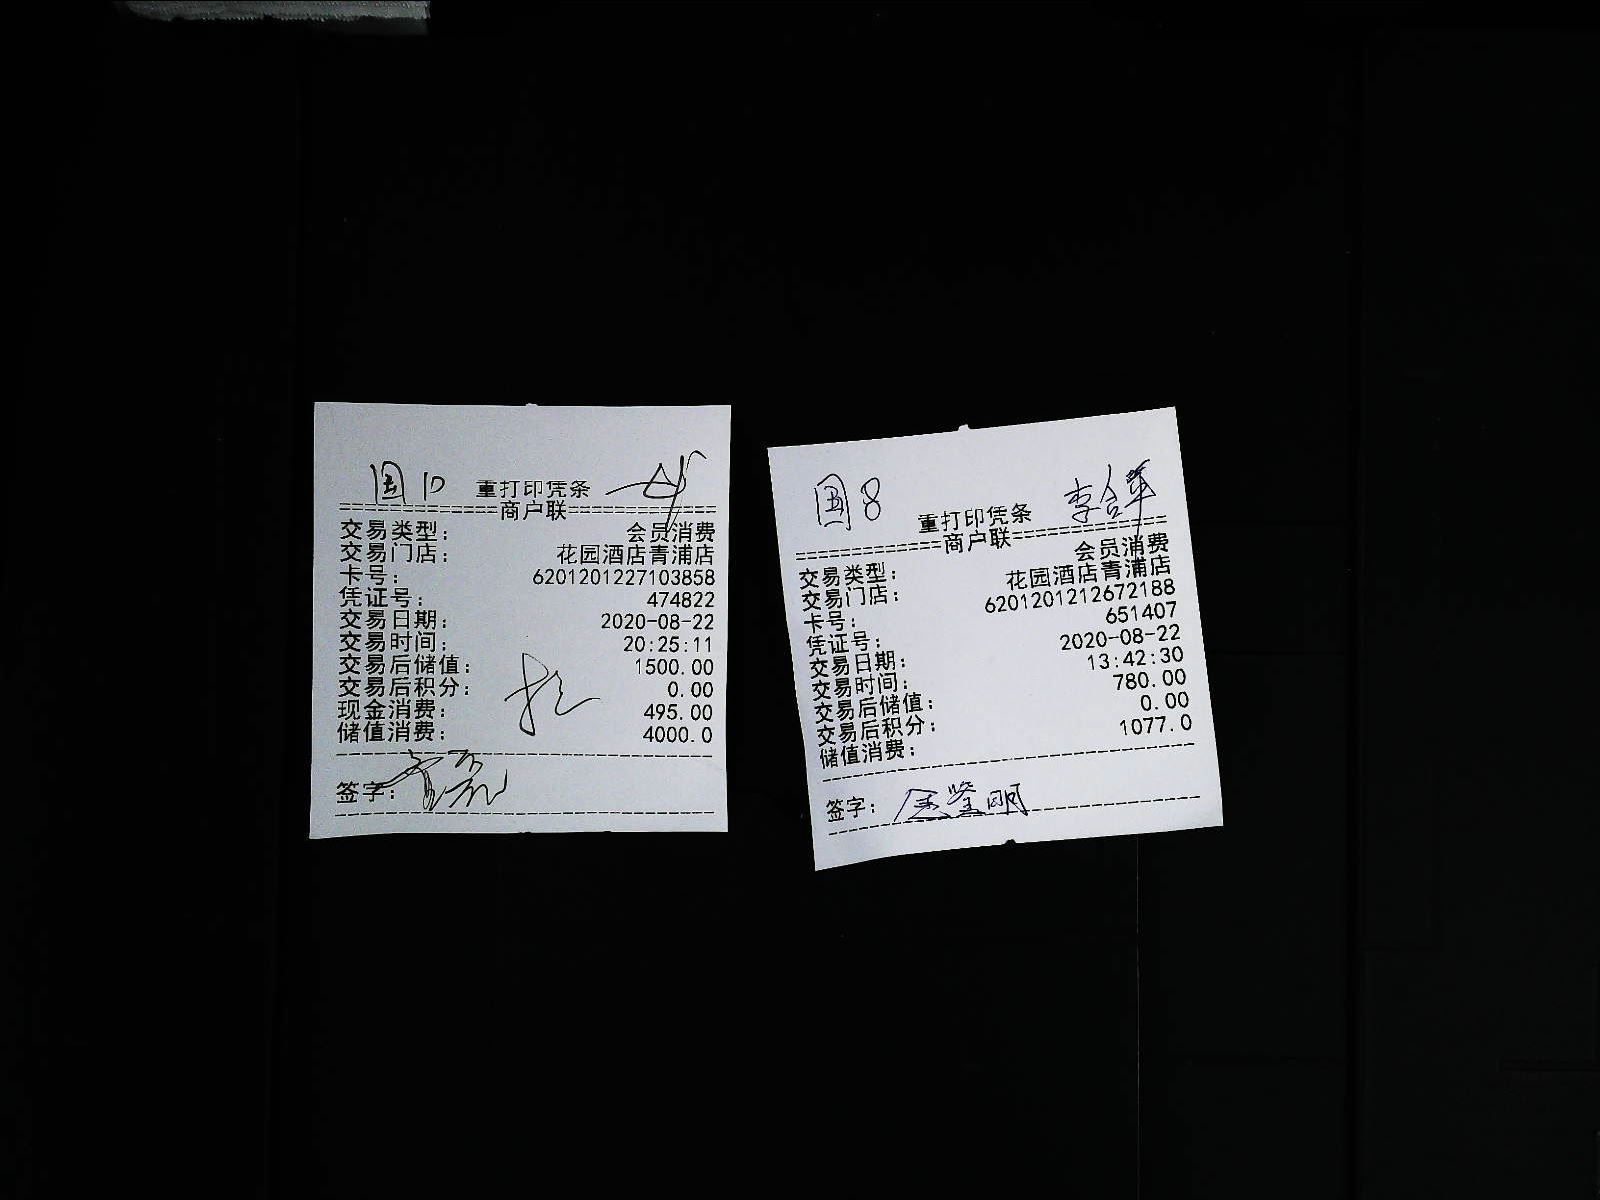 国10 重打印凭条
============商户联============
交易类型: 会员消费
交易门店: 花园酒店青浦店
卡号: 6201201227103858
凭证号: 474822
交易日期: 2020-08-22
交易时间: 20:25:11
交易后储值: 1500.00
交易后积分: 0.00
现金消费: 495.00
储值消费: 4000.0
签字:
国8 重打印凭条
============商户联============
交易类型: 会员消费
交易门店: 花园酒店青浦店
卡号: 6201201212672188
凭证号: 651407
交易日期: 2020-08-22
交易时间: 13:42:30
交易后储值: 780.00
交易后积分: 0.00
储值消费: 1077.0
签字: